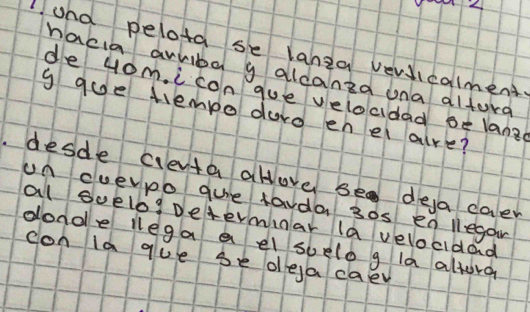 1. una pelota se lanza verticalment
hacia arriba y alcanza una altura
de 40m. ¿ con que velocidad se lanzo
y que tiempo duro en el aire?
. desde cierta altura se deja caer
un cuerpo que tarda 30s en llegar
al suelo: Determinar la velocidad
donde llega a el suelo y la altura
con la que se deja caer